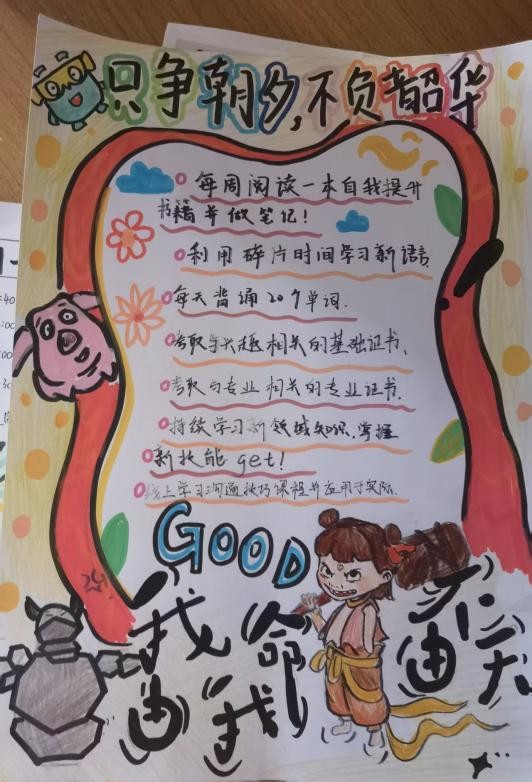 只争朝夕,不负韶华
每周阅读一本自我提升
书籍并做笔记!
利用碎片时间学习新语言
每天背诵20个单词.
考取与兴趣相关的基础证书.
考取与专业相关的专业证书.
持续学习新领域知识,掌握
新技能get!
线上学习沟通技巧课程并应用于实际.
GOOD
我命
由我
不
由天